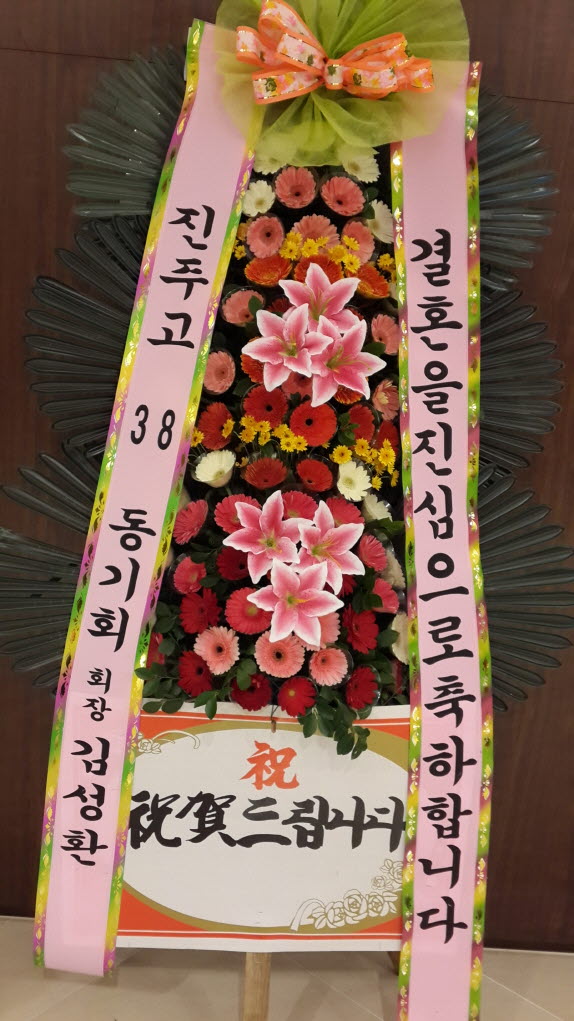 진주고 38 동기회 회장 김성환
결혼을진심으로축하합니다
祝
祝賀드립니다